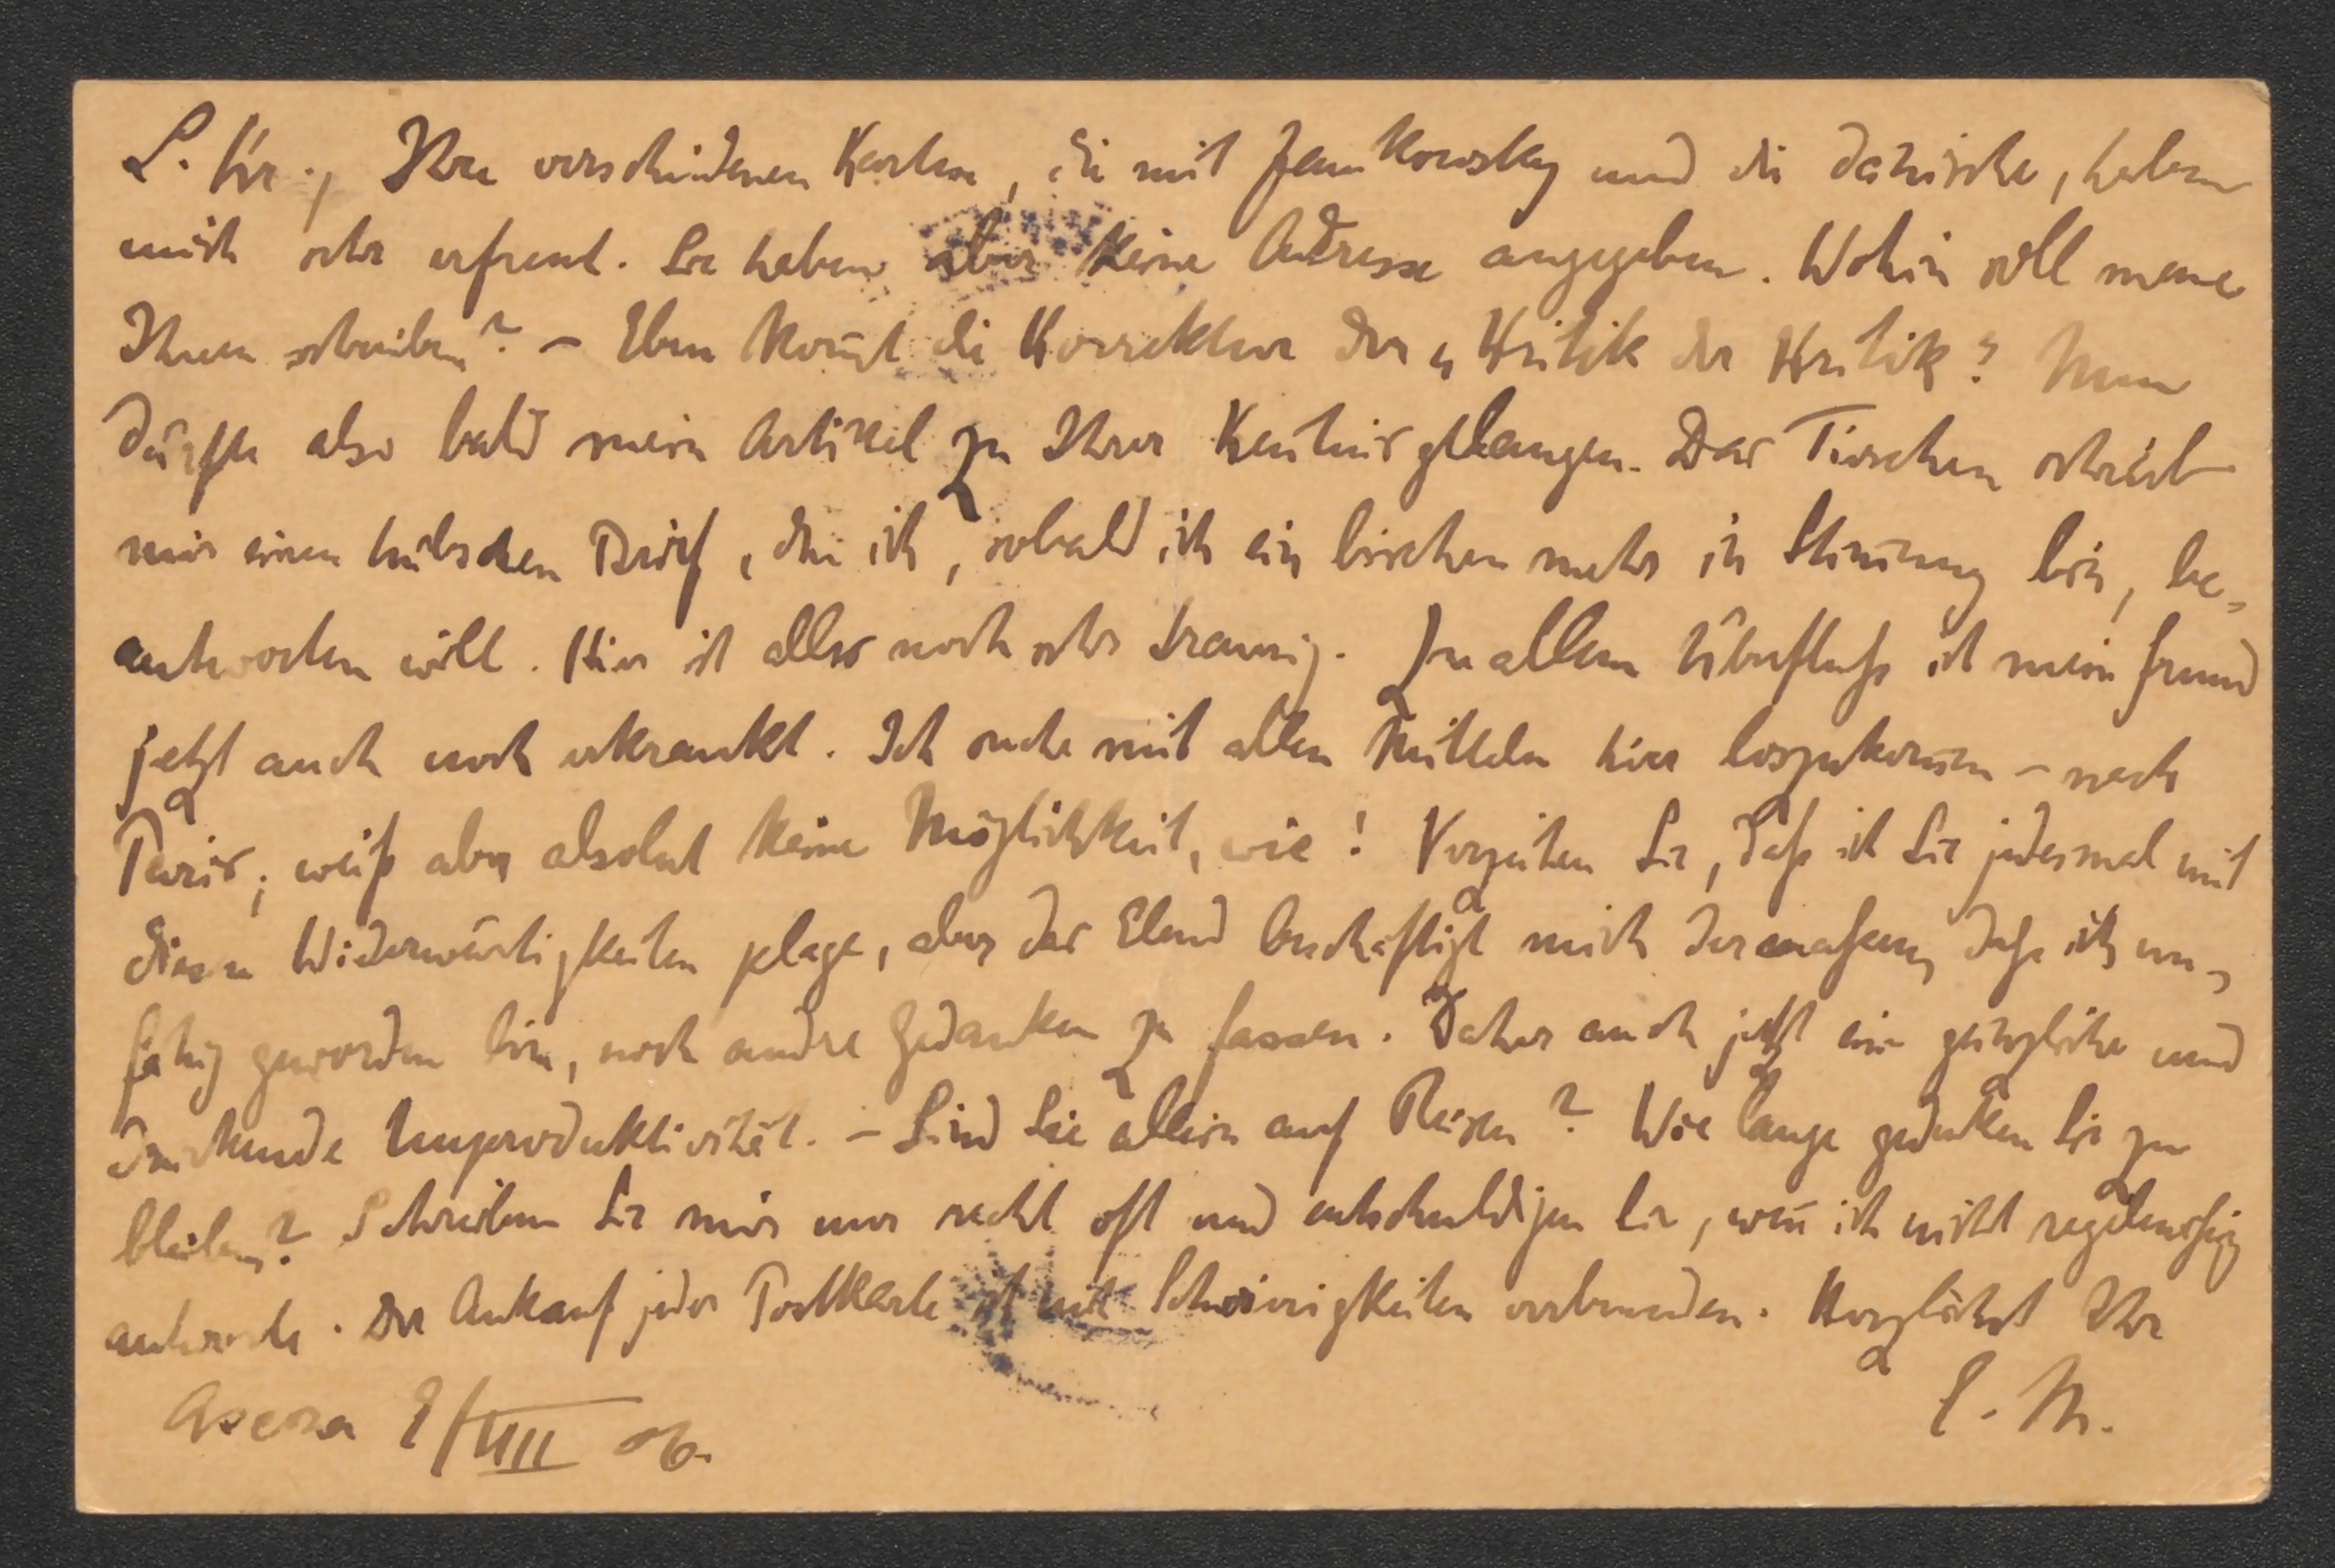 L. Kr., Ihre verschiedenen Karten, die mit Jankowsky und die dänische, haben
mich sehr erfreut. Sie haben aber keine Adresse angegeben. Wohin soll man
Ihnen schreiben? – Eben kom̄t die Korrektur der „Kritik der Kritik“. Nun
dürfte also bald mein Artikel zu Ihrer Kentnis gelangen. Das Tierchen schrieb
mir einen hübschen Brief, den ich, sobald ich ein bischen mehr in Stim̄ung bin, be-
antworten will. Hier ist alles noch sehr traurig. Zu allem Überfluß ist mein Freund
jetzt auch noch erkrankt. Ich suche mit allen Mitteln hier loszukom̄en – nach
Paris; weiß aber absolut keine Möglichkeit, wie! Verzeihen Sie, daß ich Sie jedesmal mit
diesen Widerwärtigkeiten plage, aber das Elend beschäftigt mich dermaßen, daß ich un-
fähig geworden bin, noch andre Gedanken zu fassen. Daher auch jetzt eine gänzliche und
drückende Unproduktivität. – Sind Sie allein auf Reisen? Wie lange gedenken Sie zu
bleiben? Schreiben Sie mir nur recht oft und entschuldigen Sie, wen̄ ich nicht regelmäßig
antworte. Der Ankauf jeder Postkarte ist mit Schwierigkeiten verbunden. Herzlichst Ihr
E. M.
Ascona 9/VIII 06.